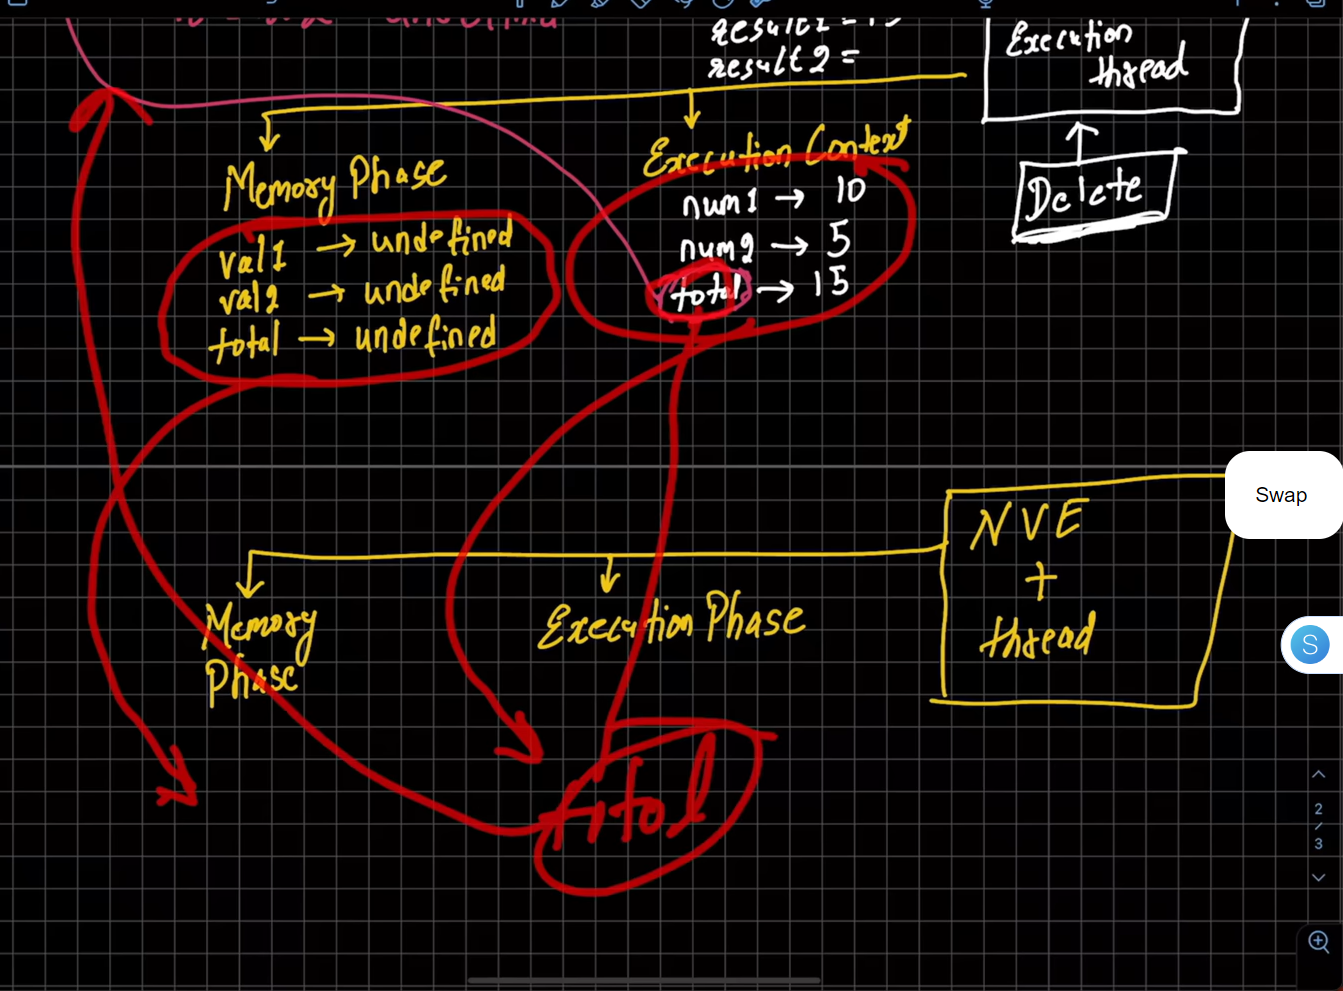 result2 =
Execution
thread
Memory Phase
val1 → undefined
val2 → undefined
total → undefined
Execution Context
num1 → 10
num2 → 5
total → 15
Delete
Swap
NVE
+
thread
Memory
Phase
Execution Phase
total
S
2
3